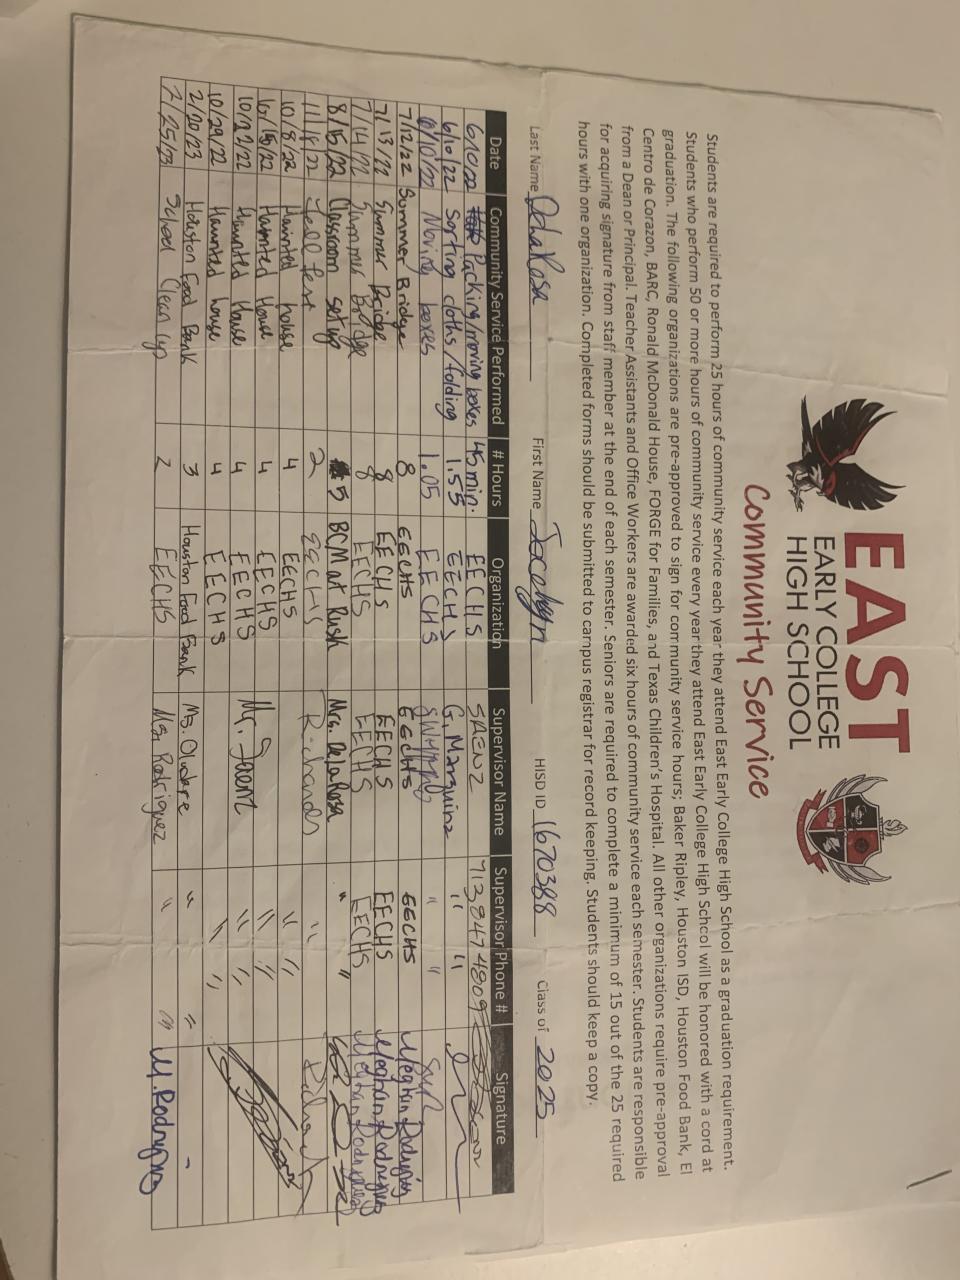 EAST
EARLY COLLEGE
HIGH SCHOOL
Community Service
Students are required to perform 25 hours of community service each year they attend East Early College High School as a graduation requirement.
Students who perform 50 or more hours of community service every year they attend East Early College High School will be honored with a cord at
graduation. The following organizations are pre-approved to sign for community service hours; Baker Ripley, Houston ISD, Houston Food Bank, El
Centro de Corazon, BARC, Ronald McDonald House, FORGE for Families, and Texas Children's Hospital. All other organizations require pre-approval
from a Dean or Principal. Teacher Assistants and Office Workers are awarded six hours of community service each semester. Students are responsible
for acquiring signature from staff member at the end of each semester. Seniors are required to complete a minimum of 15 out of the 25 required
hours with one organization. Completed forms should be submitted to campus registrar for record keeping. Students should keep a copy.
Last Name DelaRosa First Name Jocelyn HISD ID 1670388 Class of 2025
Date Community Service Performed # Hours Organization Supervisor Name Supervisor Phone # Signature
6/10/22 Packing/moving boxes 45 min. EECHS SAENZ 713 847 4809
6/10/22 sorting cloths/folding 1.55 EECHS G. " "
6/10/22 Moving boxes 1.05 EECHS " "
7/12/22 Summer Bridge 8 EECHS EECHS EECHS Meghan Rodriguez
7/13/22 Summer Bridge 8 EECHS EECHS EECHS Meghan Rodriguez
7/14/22 Summer Bridge 8 EECHS EECHS EECHS Meghan Rodriguez
8/15/22 Classroom set up 5 BCM at Rusk Mrs. DelaRosa " "
11/18/22 Fall Fest 2 EECHS Richards "
10/8/22 Haunted house 4 EECHS " "
10/15/22 Haunted House 4 EECHS " "
10/22/22 Haunted House 4 EECHS Mr. " "
10/29/22 Haunted house 4 EECHS " "
2/20/23 Houston Food Bank 3 Houston Food Bank Ms. " "
2/25/23 School Clean up 2 EECHS Ms. Rodriguez " " M. Rodriguez